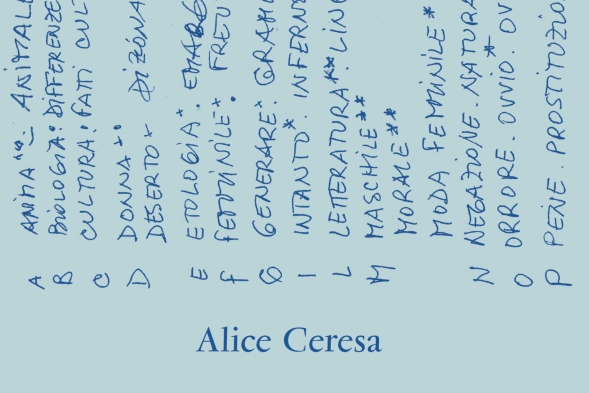 A ANIMA**. ANIMAL
B BIOLOGIA. DIFFERENZE
C CULTURA. FATTI CUL
D DONNA** DIZIONA
DESERTO*
E ETOLOGIA*.
F FEMMINILE*.
G GENERARE*. GRAM
I INTANTO*. INFERN
L LETTERATURA**. LING
M MASCHILE**
MORALE**
MODA FEMMINILE*
N NEGAZIONE. NATURA*
O ORRORE. OVVIO. OV
P PENE. PROSTITUZIO
Alice Ceresa